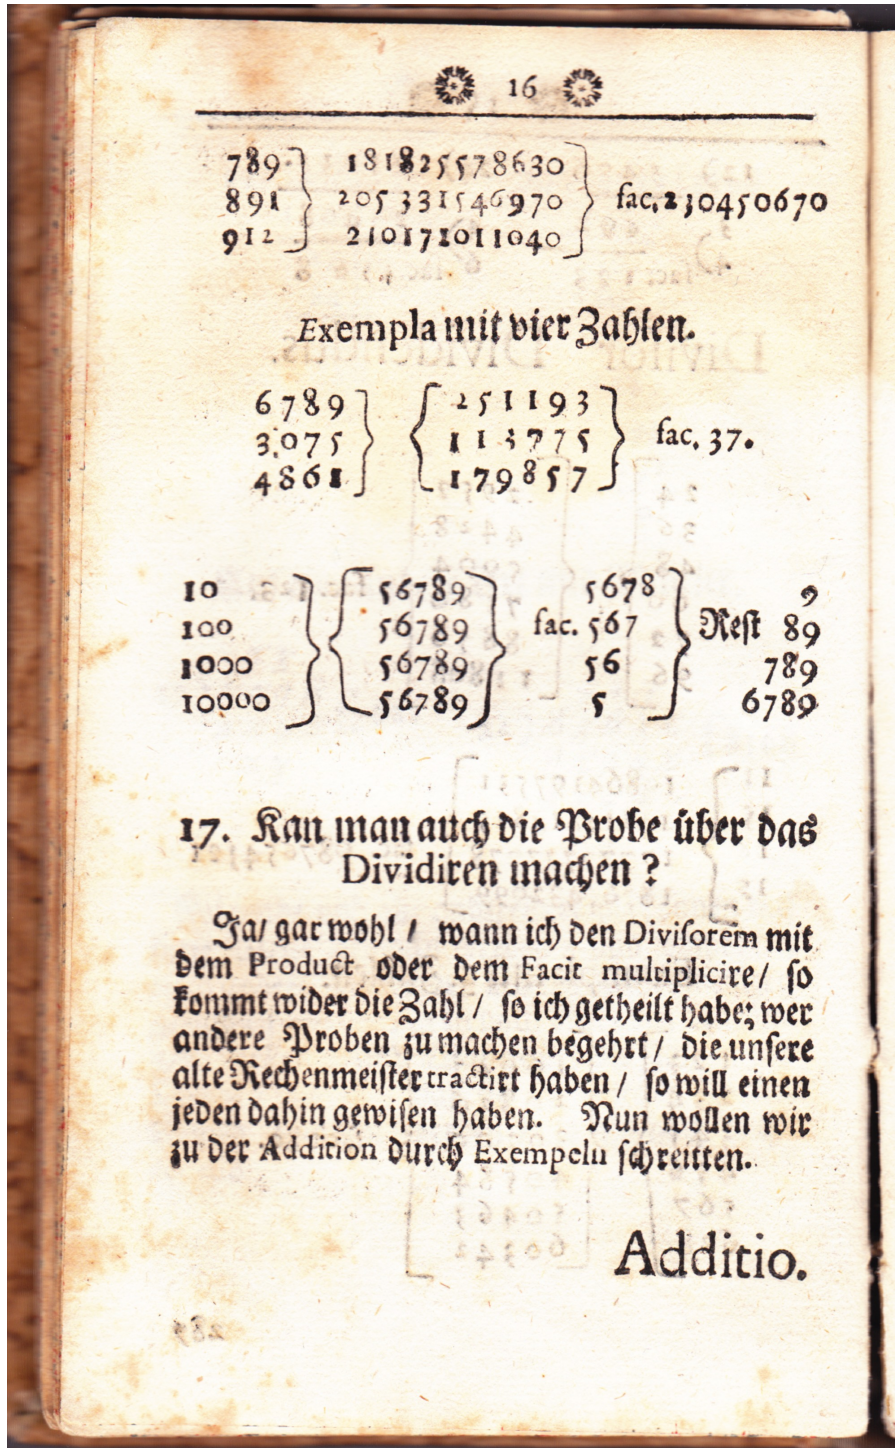 16
789 181825578630
891 205331546970 fac. 230450670
912 210171011040
Exempla mit vier Zahlen.
6789 251193
3075 113775 fac. 37.
4861 179857
10 56789 5678 9
100 56789 fac. 567 Rest 89
1000 56789 56 789
10000 56789 5 6789
17. Kan man auch die Probe über das
Dividiren machen?
Ja/ gar wohl / wann ich den Divisorem mit
dem Product oder dem Facit multiplicire/ so
kommt wider die Zahl / so ich getheilt habe; wer
andere Proben zu machen begehrt / die unsere
alte Rechenmeister tractirt haben / so will einen
jeden dahin gewisen haben. Nun wollen wir
zu der Addition durch Exempeln schreitten.
Additio.